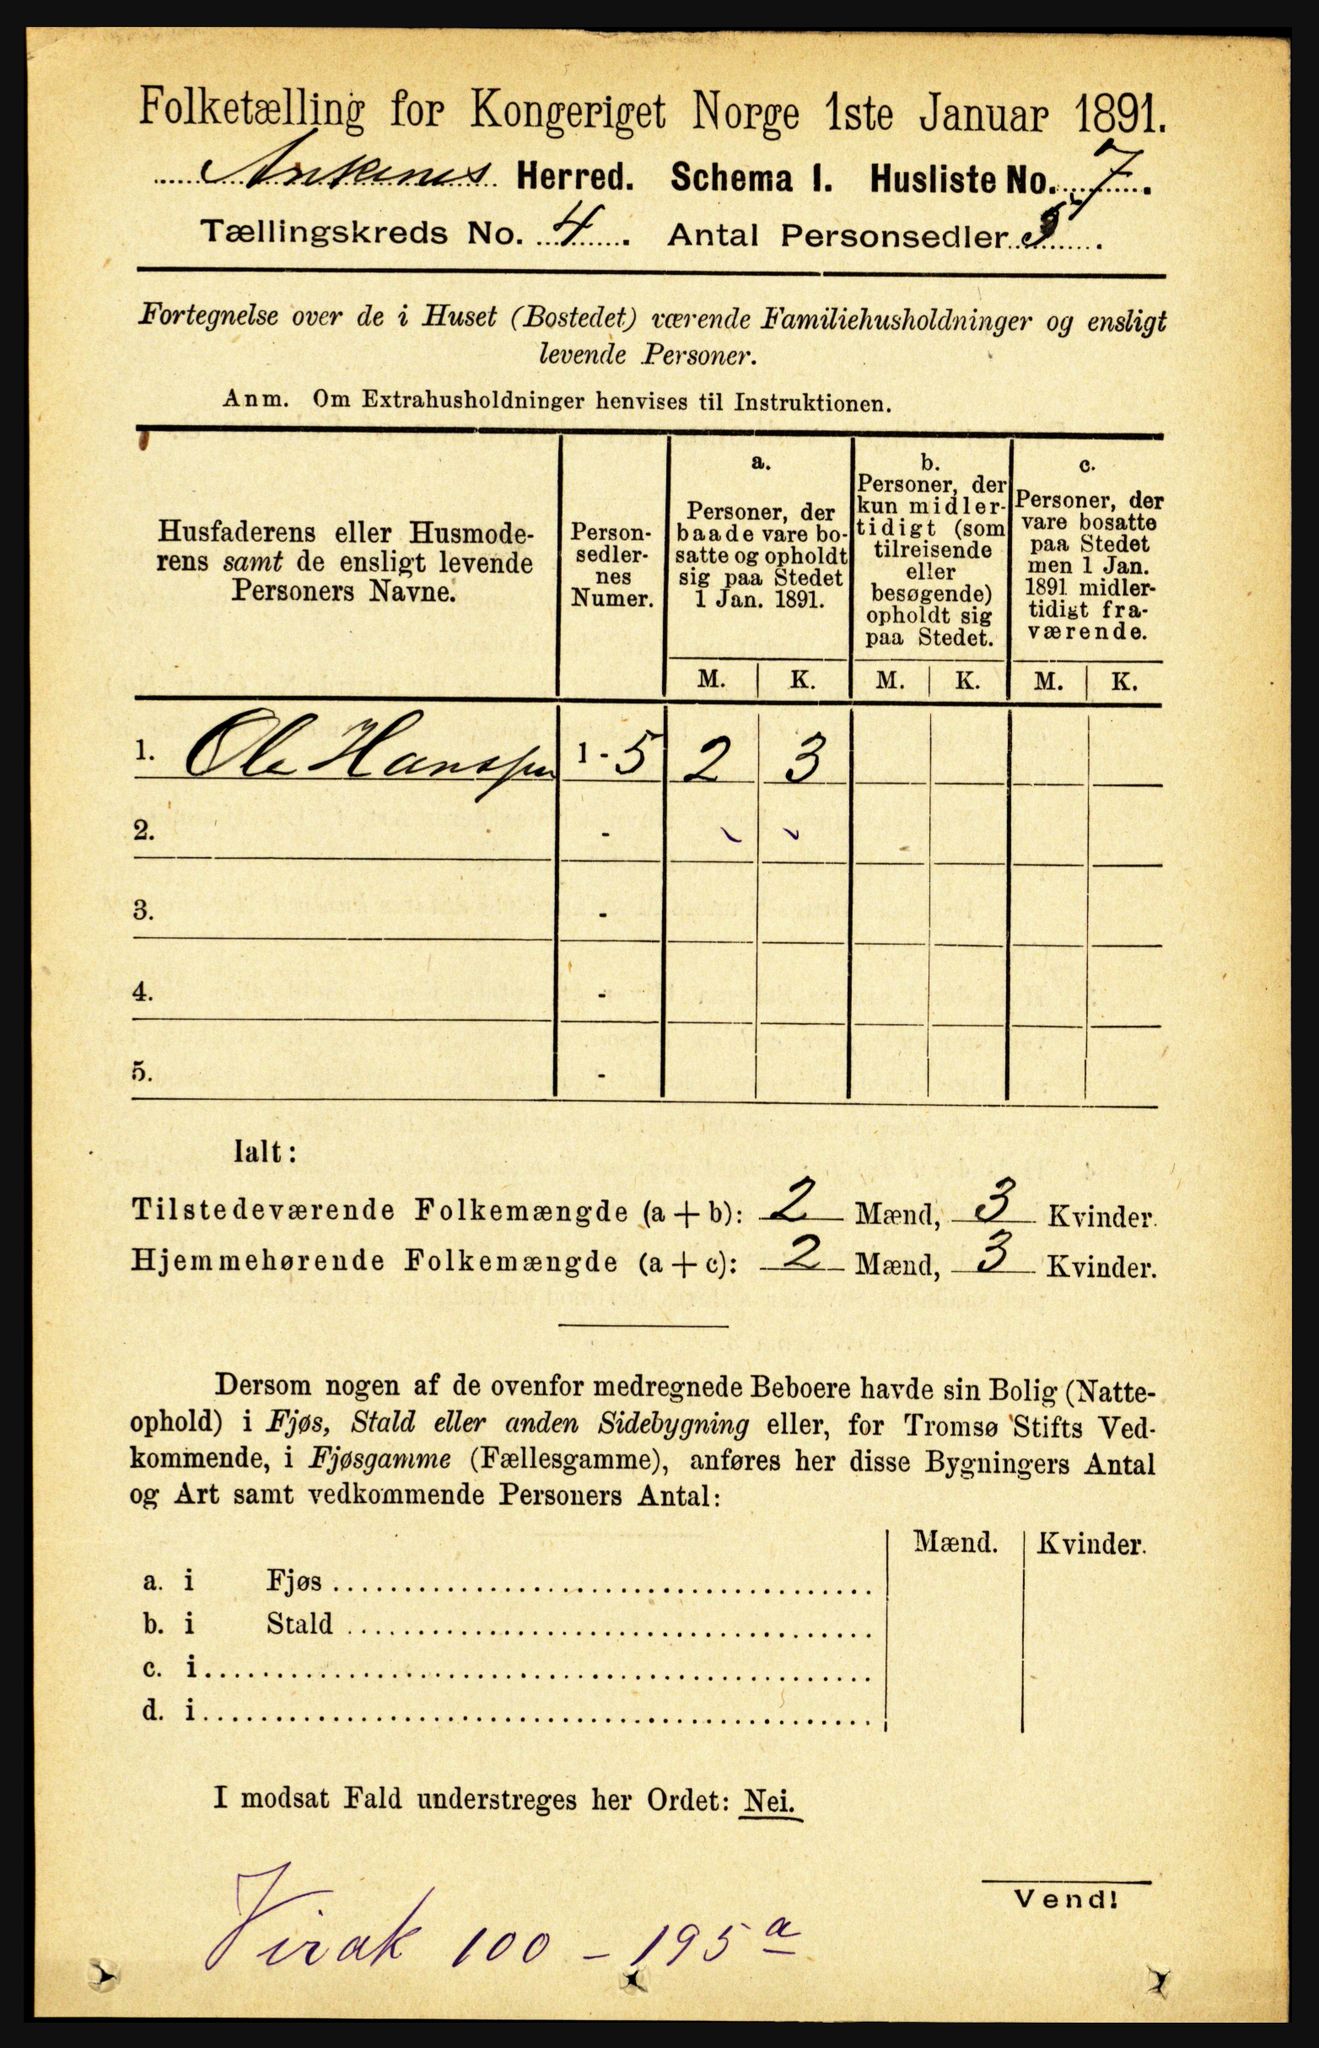 Folketælling for Kongeriget Norge 1ste Januar 1891.
Ankenes Herred. Schema I. Husliste No. 7.
Tællingskreds No. 4. Antal Personsedler 5.
Fortegnelse over de i Huset (Bostedet) værende Familiehusholdninger og ensligt
levende Personer.
Anm. Om Extrahusholdninger henvises til Instruktionen.
Husfaderens eller Husmode-
rens samt de ensligt levende
Personers Navne.
Person-
sedler-
nes
Numer.
a.
Personer, der
baade vare bo-
satte og opholdt
sig paa Stedet
1 Jan. 1891.
b.
Personer, der
kun midler-
tidigt (som
tilreisende
eller
besøgende)
opholdt sig
paa Stedet.
c.
Personer, der
vare bosatte
paa Stedet
men 1 Jan.
1891 midler-
tidigt fra-
værende.
M. K. M. K. M. K.
1. Ole Hanssen 1 - 5 2 3
2. -
3. -
4. -
5. -
Ialt:
Tilstedeværende Folkemængde (a + b): 2 Mænd, 3 Kvinder.
Hjemmehørende Folkemængde (a + c): 2 Mænd, 3 Kvinder.
Dersom nogen af de ovenfor medregnede Beboere havde sin Bolig (Natte-
ophold) i Fjøs, Stald eller anden Sidebygning eller, for Tromsø Stifts Ved-
kommende, i Fjøsgamme (Fællesgamme), anføres her disse Bygningers Antal
og Art samt vedkommende Personers Antal:
Mænd. Kvinder.
a. i Fjøs
b. i Stald
c. i
d. i
I modsat Fald understreges her Ordet: Nei.
Vend!
Virak 100 - 195 a